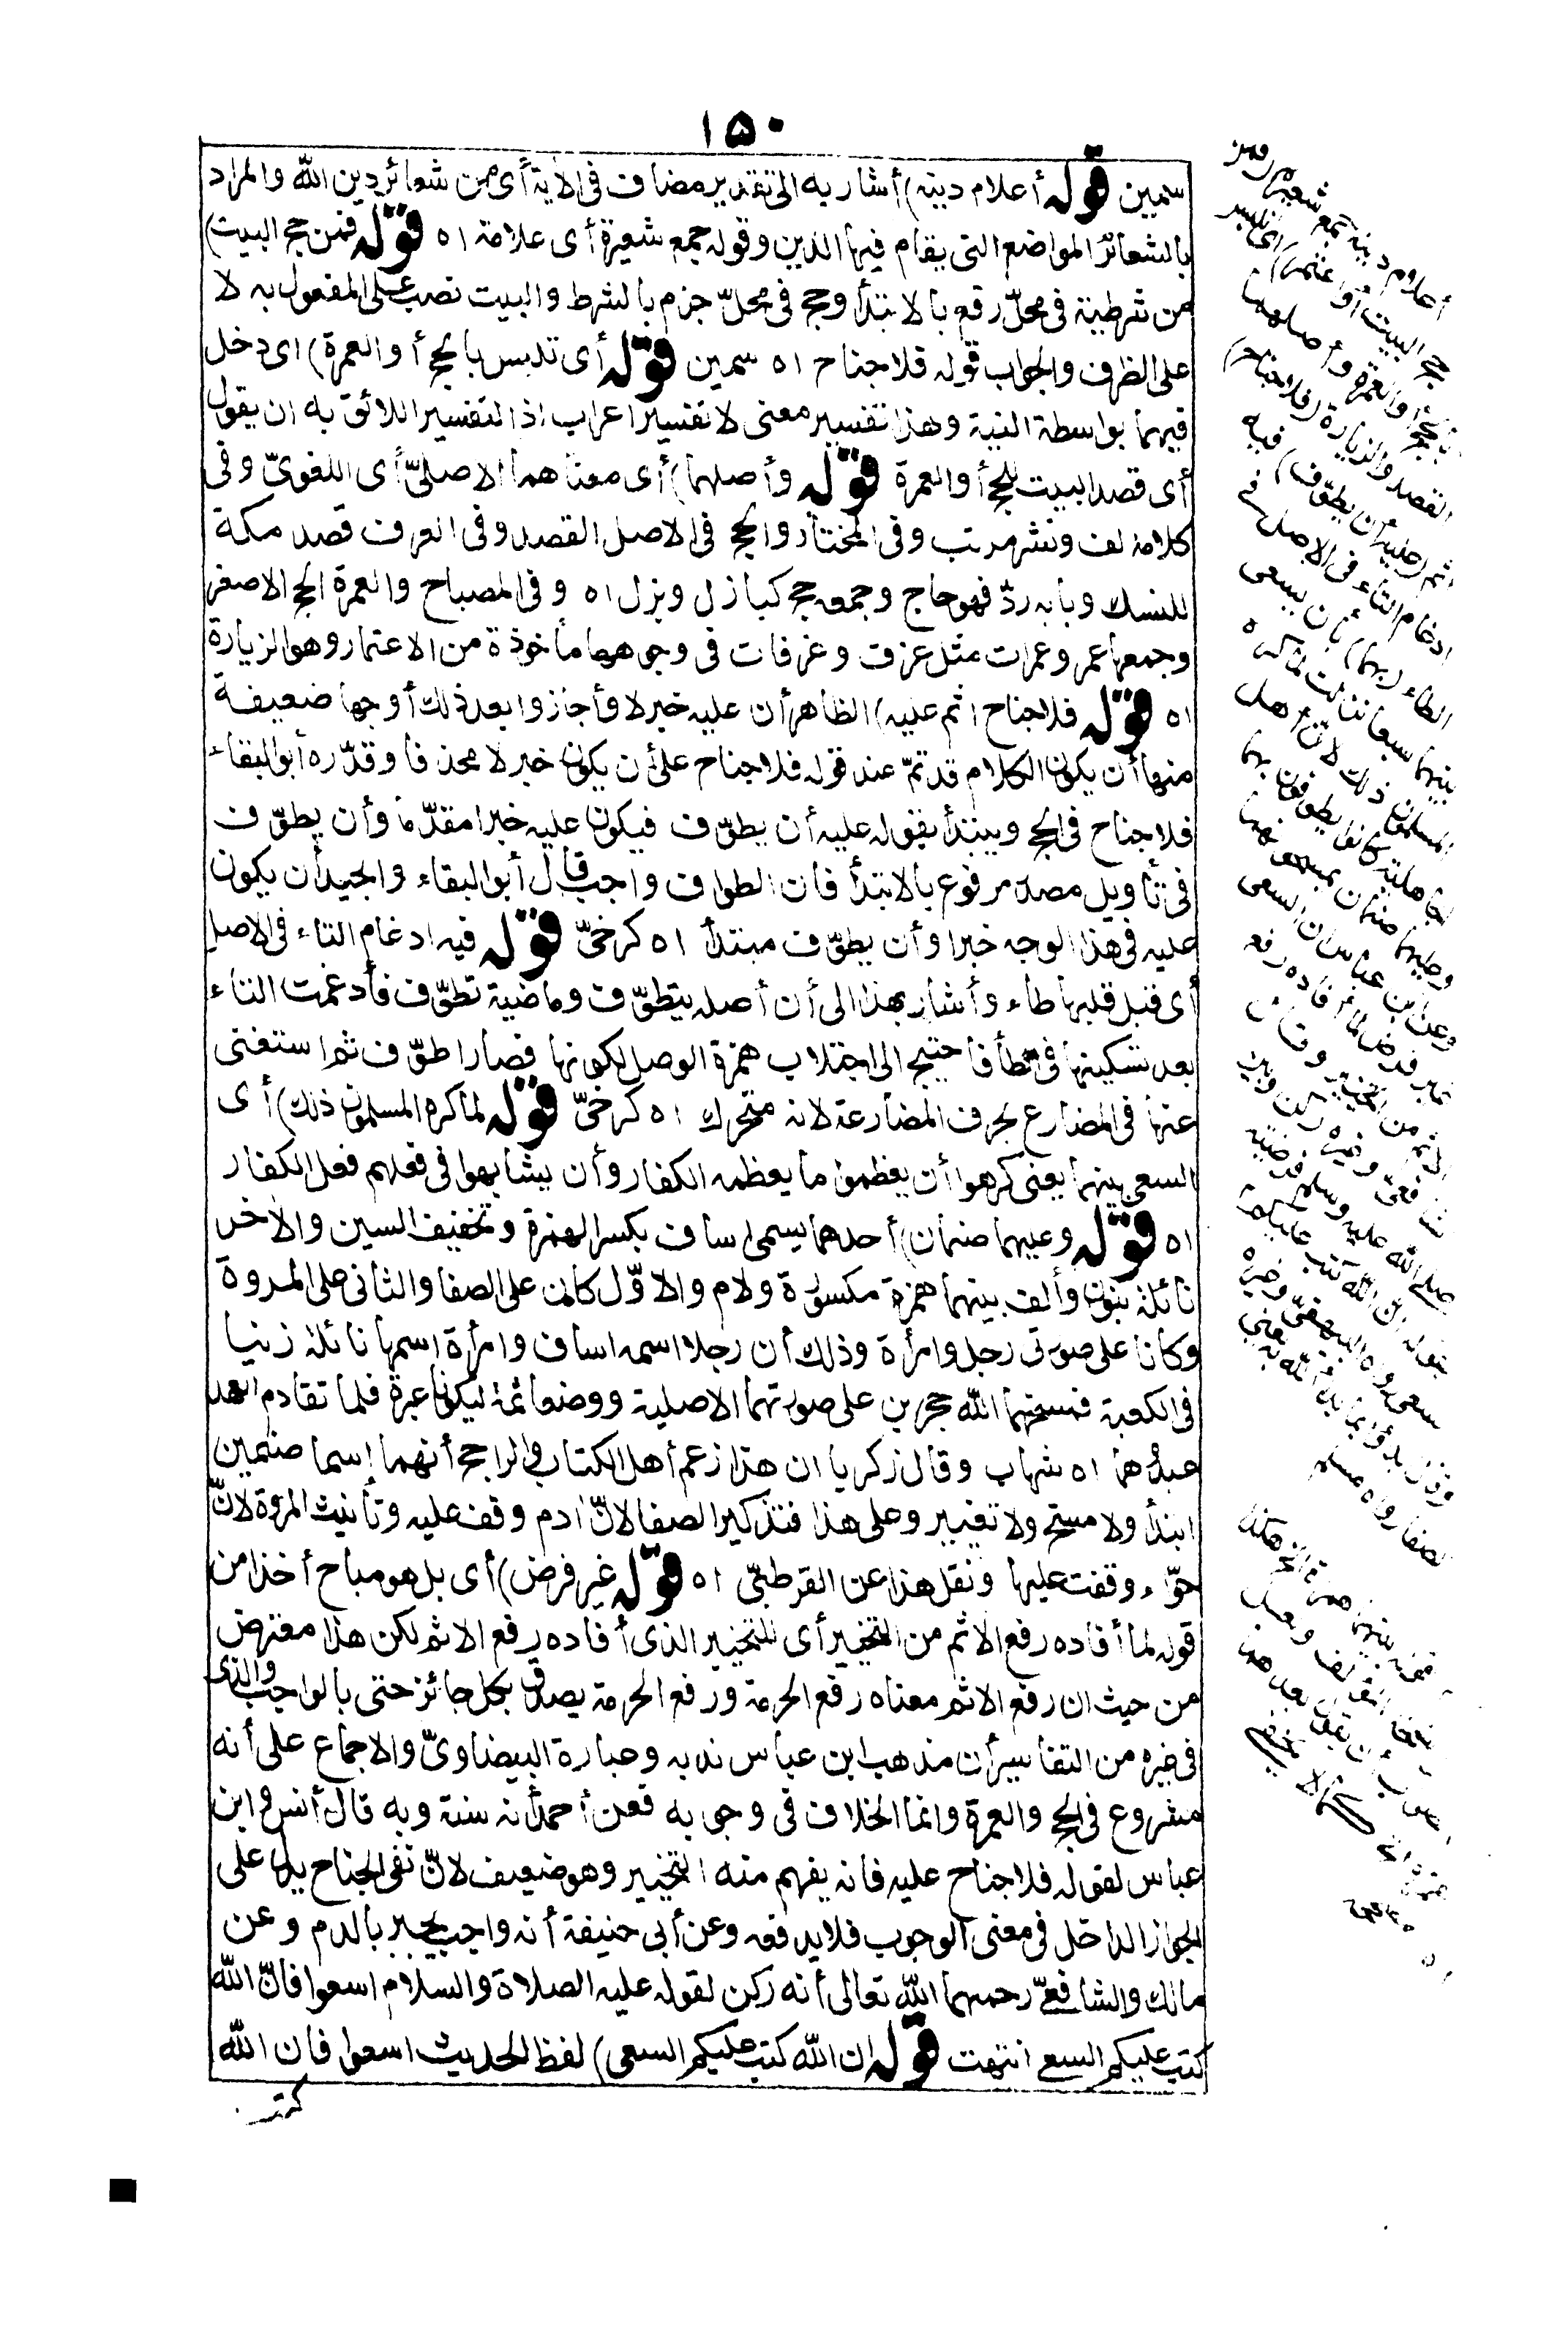 ١٥٠
سمين قوله أعلام دينه) أشار به الى تقدير مضاف فى الآية أى من شعائر دين الله والمراد
بالشعائر المواضع التى يقام فيها الدين وقوله جمع شعيرة أى علامة اه قوله فمن حج البيت)
من شرطية فى محلّ رفع بالابتدأ وحج فى محلّ جزم بالشرط والبيت نصب على المفعول به لا
على الظرف والجواب قوله فلا جناح اه سمين قوله أى تلبس بالحج أو العمرة) اى دخل
فيهما بواسطة النية وهذا تفسير معنى لا تفسير اعراب اذ التفسير اللائق به ان يقول
أى قصد البيت للحج أو العمرة قوله وأصلهما) أى معناهما الاصلىّ أى اللغوىّ وفى
كلامه لف ونشر مرتب وفى المختار والحج فى الاصل القصد وفى العرف قصد مكة
للنسك وبابه ردّ فهو حاج وجمعه حج كبازل وبزل اه وفى المصباح والعمرة الحج الاصغر
وجمعها عمر وعمرات مثل غرف وغرفات فى وجوهها مأخوذة من الاعتمار وهو الزيارة
اه قوله فلا جناح اثم عليه) الظاهر أن عليه خبر لا وأجازوا بعد ذلك أوجها ضعيفة
منها أن يكون الكلام قد تمّ عند قوله فلا جناح على أن يكون خبر لا محذفا وقدّره أبو البقاء
فلا جناح فى الحج ويبتدأ بقوله عليه أن يطوّف فيكون عليه خبرا مقدّما وأن يطوّف
فى تأويل مصدر مرفوع بالابتدأ فان الطواف واجب قال أبو البقاء والجيد أن يكون
عليه فى هذا الوجه خبرا وأن يطوّف مبتدأ اه كرخىّ قوله فيه ادغام التاء فى الاصل
أى قبل قلبها طاء وأشار بهذا الى أن أصله يتطوّف وماضية تطوّف فأدغمت التاء
بعد تسكينها فى الطأ فاحتيج الى اجتلاب همزة الوصل لكونها فصار اطوّف ثم استغنى
عنها فى المضارع بحرف المضارعة لانه متحرك اه كرخىّ قوله لما كره المسلمون ذلك) أى
السعى بينهما يعنى كرهوا أن يعظموا ما يعظمه الكفار وأن يشابهوا فى فعلهم فعل الكفار
اه قوله وعليهما صنمان) أحدهما يسمى اساف بكسر الهمزة وتخفيف السين والآخر
نائلة بنون وألف بينهما همزة مكسورة ولام والاوّل كان على الصفا والثانى على المروة
وكانا على صورتى رجل وامرأة وذلك أن رجلا اسمه اساف وامرأة اسمها نائلة زنيا
فى الكعبة فمسخهما الله حجرين على صورتهما الاصلية ووضعا ثمة ليكونا عبرة فلما تقادم العهد
عبدوهما اه شهاب وقال زكريا ان هذا زعم أهل الكتاب والراجح أنهما إسما صنمين
ابتدأ ولا مسخ ولا تغيير وعلى هذا فتذكير الصفا لانّ آدم وقف عليه وتأنيث المروة لانّ
حوّاء وقفت عليها ونقل هذا عن القرطبىّ اه قوله غير فرض) أى بل هو مباح أخذا من
قوله لما أفاده رفع الاثم من التخيير أى للتخيير الذى أفاده رفع الاثم لكن هذا معترض
من حيث ان رفع الاثم معناه رفع الحرمة ورفع الحرمة يصدق بكل جائز حتى بالواجب والذى
فى غيره من التفاسير أن مذهب ابن عباس ندبه وعبارة البيضاوىّ والاجماع على أنه
مشروع فى الحج والعمرة وانما الخلاف فى وجوبه فعن أحمد أنه سنة وبه قال أنس وابن
عباس لقوله فلا جناح عليه فانه يفهم منه التخيير وهو ضعيف لانّ نفى الجناح يدل على
الجواز الداخل فى معنى الوجوب فلا يدفعه وعن أبى حنيفة أنه واجب يجبر بالدم وعن
مالك والشافعىّ رحمهما الله تعالى أنه ركن لقوله عليه الصلاة والسلام اسعوا فانّ الله
كتب عليكم السعى انتهت قوله ان الله كتب عليكم السعى) لفظ الحديث اسعوا فان الله
كتب
أعلام دينه جمع شعيرة (فمن
حج البيت أو اعتمر) أى تلبس
بالحج أو العمرة وأصلهما
القصد والزيارة (فلا جناح)
اثم (عليه أن يطوّف) فيه
ادغام التاء فى الاصل فى
الطاء (بهما) بأن يسعى
بينهما سبعا نزلت لما كره
المسلمون ذلك لانّ أهل
الجاهلية كانوا يطوفون بهما
وعليهما صنمان يمسحونهما
وعن ابن عباس ان السعى
غير فرض لما أفاده رفع
الاثم من التخيير وقال
الشافعىّ وغيره ركن وبين
صلى الله عليه وسلم فرضيته
بقوله ان الله كتب عليكم
السعى رواه البيهقىّ وغيره
وقال ابدؤا بما بدأ الله به يعنى
الصفا رواه مسلم